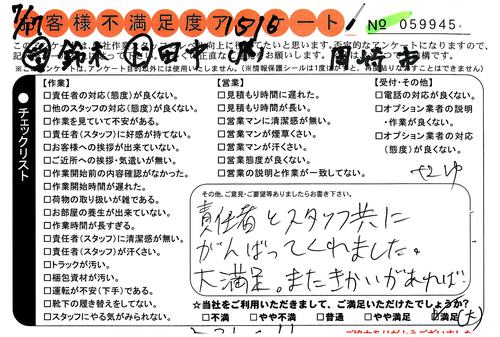 お客様不満足度アンケート!
No 059945
7/17
1516
岡崎市
【作業】
□責任者の対応(態度)が良くない。
□他のスタッフの対応(態度)が良くない。
□作業を見ていて不安がある。
□責任者(スタッフ)に好感が持てない。
□お客様への挨拶が出来ていない。
□ご近所への挨拶・気遣いが無い。
□作業開始前の内容確認がなかった。
□作業開始時間が遅れた。
□荷物の取り扱いが雑である。
□お部屋の養生が出来ていない。
□作業時間が長すぎる。
□責任者(スタッフ)に清潔感が無い。
□責任者(スタッフ)が汗くさい。
□トラックが汚い。
□梱包資材が汚い。
□運転が不安(下手)である。
□靴下の履き替えをしてない。
□スタッフにやる気がみられない。
【営業】
□見積もり時間に遅れた。
□見積もり時間が長い。
□営業マンに清潔感が無い。
□営業マンが煙草くさい。
□営業マンが汗くさい。
□営業態度が良くない。
□営業の説明と作業が一致してない。
【受付・その他】
□電話の対応が良くない。
□オプション業者の説明
・作業が良くない。
□オプション業者の対応
(態度)が良くない。
チェックリスト
その他、ご意見・ご要望等ありましたらお書き下さい。
責任者とスタッフ共に
がんばってくれました。
大満足。またきかいがあれば
☆当社をご利用いただきまして、ご満足いただけたでしょうか?
□不満 □やや不満 □普通 □やや満足 □満足(大)
ご協力ありがとうございました